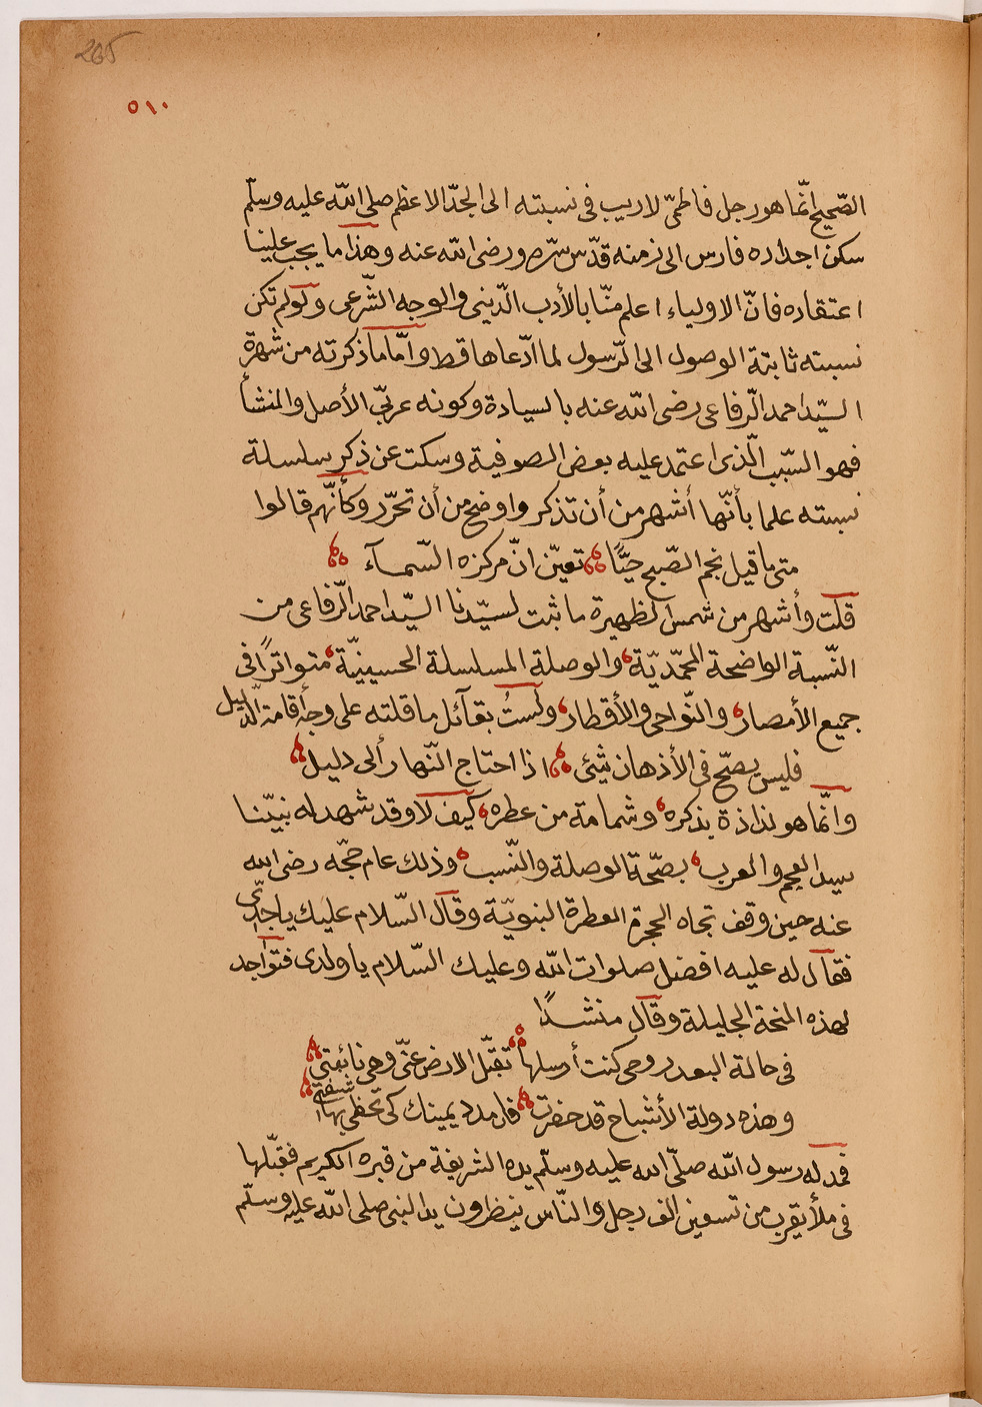 265
٥١٠
الصّحيح انّما هو رجل فاطمىّ لاريب فى نسبته الى الجدّ الاعظم صلى الله عليه وسلّم
سكن اجداده فارس الى زمنه قدّس سرّه ورضى الله عنه وهذا ما يجب علينا
اعتقاده فانّ الاولياء اعلم منّا بالأدب الدّينى والوجه الشّرعى ولو لم تكن
نسبته ثابتة الوصول الى الرّسول لما ادّعاها قط وامّا ما ذكرته من شهرة
السيّد احمد الرّفاعى رضى الله عنه بالسيادة وكونه عربىّ الأصل والمنشأ
فهو السّبب الّذى اعتمد عليه بعض الصوفية وسكت عن ذكر سلسلة
نسبته علما بأنّها أشهر من أن تذكر واوضح من أن تحرّر وكأنّهم قالوا
متى ما قيل نجم الصّبح حيًّا تعيّن انّ مركزه السّمآء
قلت وأشهر من شمس الظهيرة ما ثبت لسيّدنا السيّد احمد الرّفاعى من
النّسبة الواضحة المحمّديّة والوصلة المسلسلة الحسينيّة متواترًا فى
جميع الأمصار والنّواحى والأقطار ولستُ بقآئل ما قلته على وجه أقامة الدّليل
فليس يصحّ فى الأذهان شيئ اذا احتاج النّهار ألى دليل
وانّما هو لذاذة بذكره وشمامة من عطره كيف لا وقد شهد له نبيّنا
سيد العجم والعرب بصحّة الوصلة والنّسب وذلك عام حجّه رضى الله
عنه حين وقف تجاه الحجرة العطرة النبويّة وقال السّلام عليك ياجدّى
فقال له عليه افضل صلوات الله وعليك السّلام ياولدى فتواجد
لهذه المنحة الجليلة وقال منشدًا
فى حالة البعد روحى كنت أرسلها تقبّل الارض عنّى وهى نائبتى
وهذه دولة الأشباح قد حضرت فامدد يمينك كى تحظى بها شفتى
فمد له رسول الله صلّى الله عليه وسلّم يده الشريفة من قبره الكريم فقبّلها
فى ملأ يقرب من تسعين الف رجل والنّاس ينظرون يد النبى صلى الله عليه وسلّم